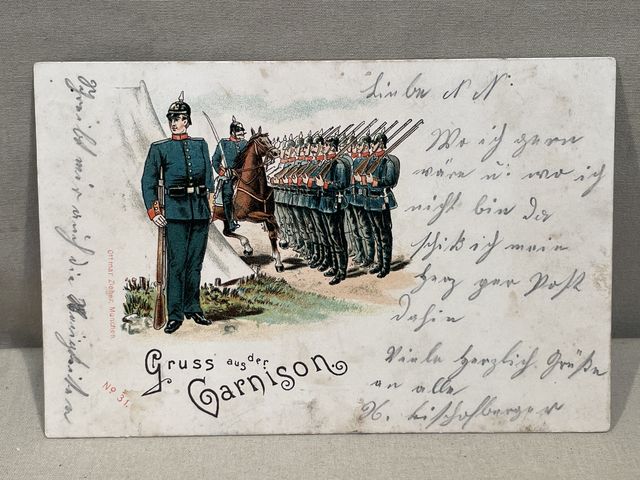 Liebe N N.
Wo ich gern
wäre u: wo ich
nicht bin da
schick ich mein
Herz per Post
dahin
Viele herzlich. Grüße
an alle
Bischofberger
Schreibt mir auch die
Gruss aus der
Garnison.
Ottmar Zieher, München.
No 31.